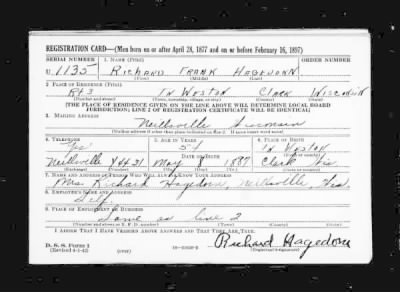 REGISTRATION CARD—(Men born on or after April 28, 1877 and on or before February 16, 1897)
SERIAL NUMBER 1. NAME (Print) ORDER NUMBER
U 1135 RICHARD FRANK HAGEDORN
(First) (Middle) (Last)
2. PLACE OF RESIDENCE (Print)
Rt 3 TN WESTON CLARK WISCONSIN
(Number and street) (Town, township, village, or city) (County) (State)
[THE PLACE OF RESIDENCE GIVEN ON THE LINE ABOVE WILL DETERMINE LOCAL BOARD
JURISDICTION; LINE 2 OF REGISTRATION CERTIFICATE WILL BE IDENTICAL]
3. MAILING ADDRESS
Neillsville Wisconsin
[Mailing address if other than place indicated on line 2. If same insert word same]
4. TELEPHONE 5. AGE IN YEARS 6. PLACE OF BIRTH
Yes 54 TN WESTON
DATE OF BIRTH
Neillsville May 8 Clark Wis
7. NAME AND ADDRESS OF PERSON WHO WILL ALWAYS KNOW YOUR ADDRESS
Mrs Richard Hagedorn, Neillsville, Wis.
8. EMPLOYER'S NAME AND ADDRESS
Self
9. PLACE OF EMPLOYMENT OR BUSINESS
Same as line 2
(Number and street or R. F. D. number) (Town) (County) (State)
I AFFIRM THAT I HAVE VERIFIED ABOVE ANSWERS AND THAT THEY ARE TRUE.
D. S. S. Form 1
(Revised 4-1-42) (over) Richard Hagedorn
(Registrant's signature)